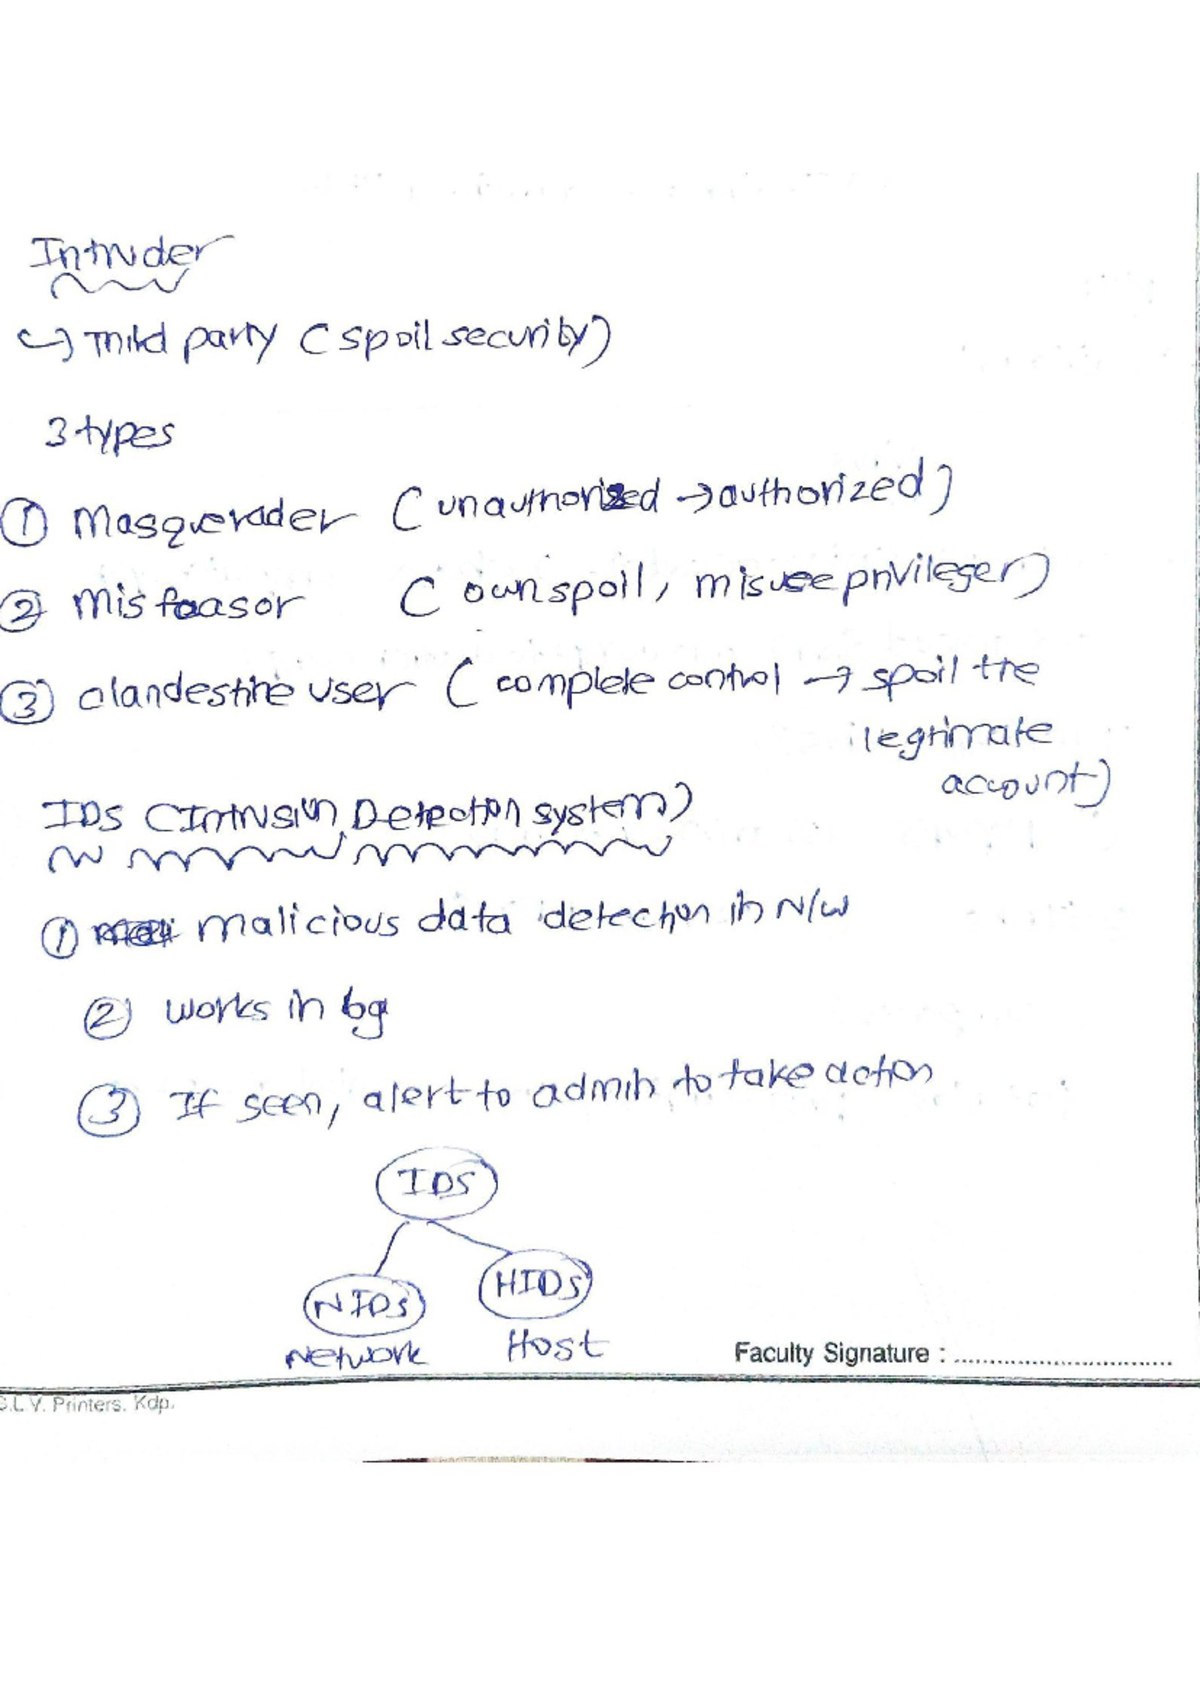 Intruder
↪ Third party (spoil security)
3 types
① Masquerader (unauthorized → authorized)
② Misfeasor (own spoil, misuse privileger)
③ clandestine user (complete control → spoil the
legitimate
account)
IDS (Intrusion Detection system)
① malicious data detection in N/W
② works in bg
③ If seen, alert to admin to take action
IDS
NIDS HIDS
Network Host
Faculty Signature : ..............................
S.L.V. Printers. Kdp.